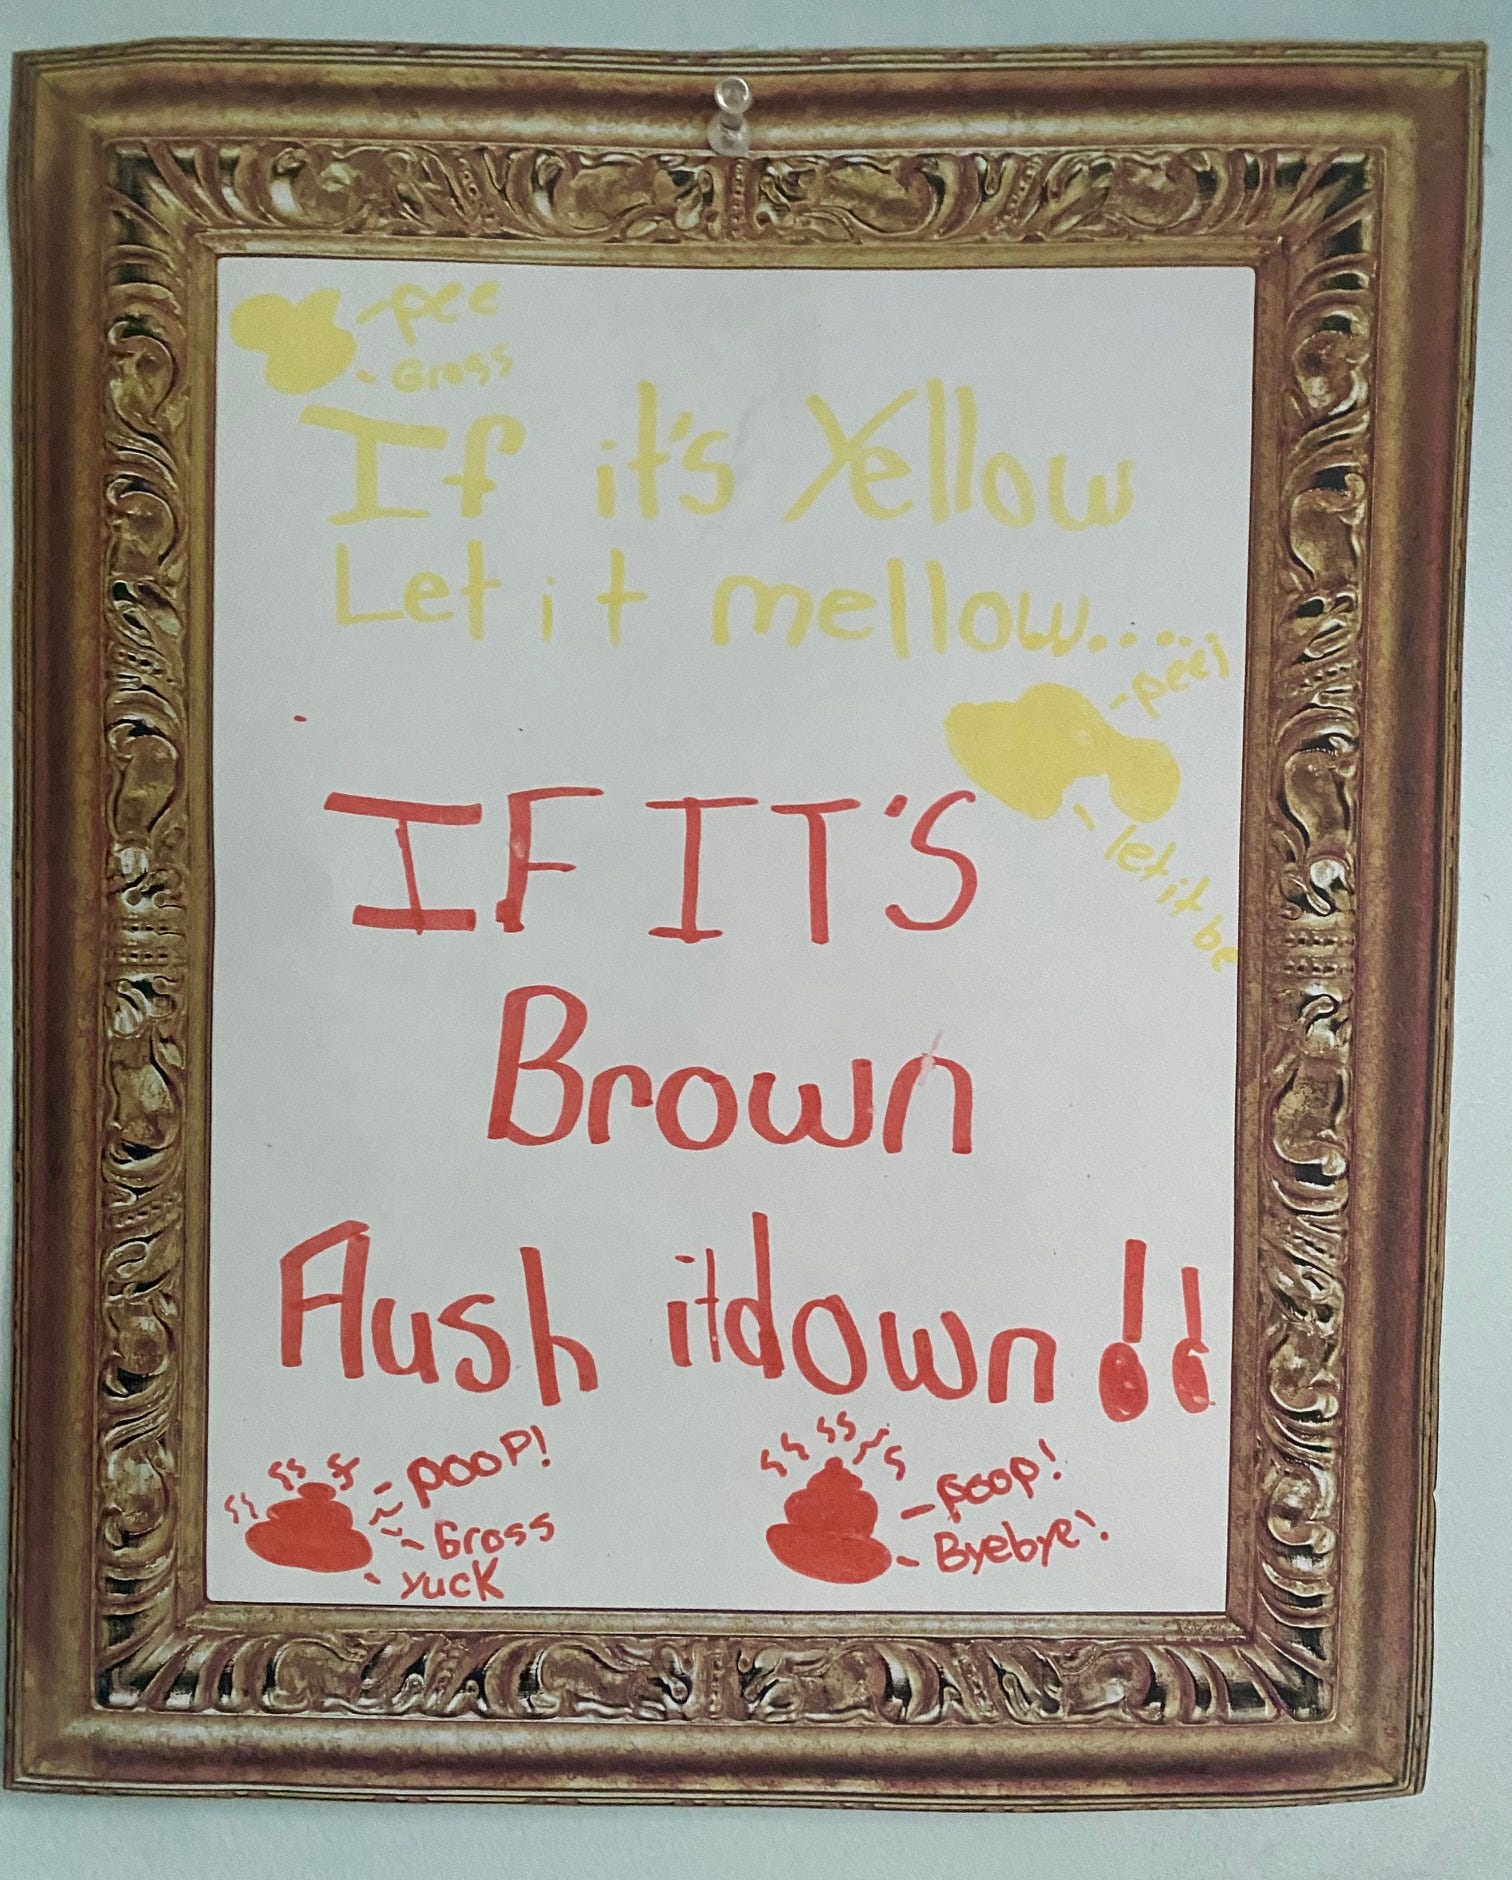 -pee
- Gross
If it's Yellow
Let it mellow.....
-pee!
- let it be
IF IT'S
Brown
Flush it down!!
- poop!
- Gross
- yuck
- poop!
- Byebye!